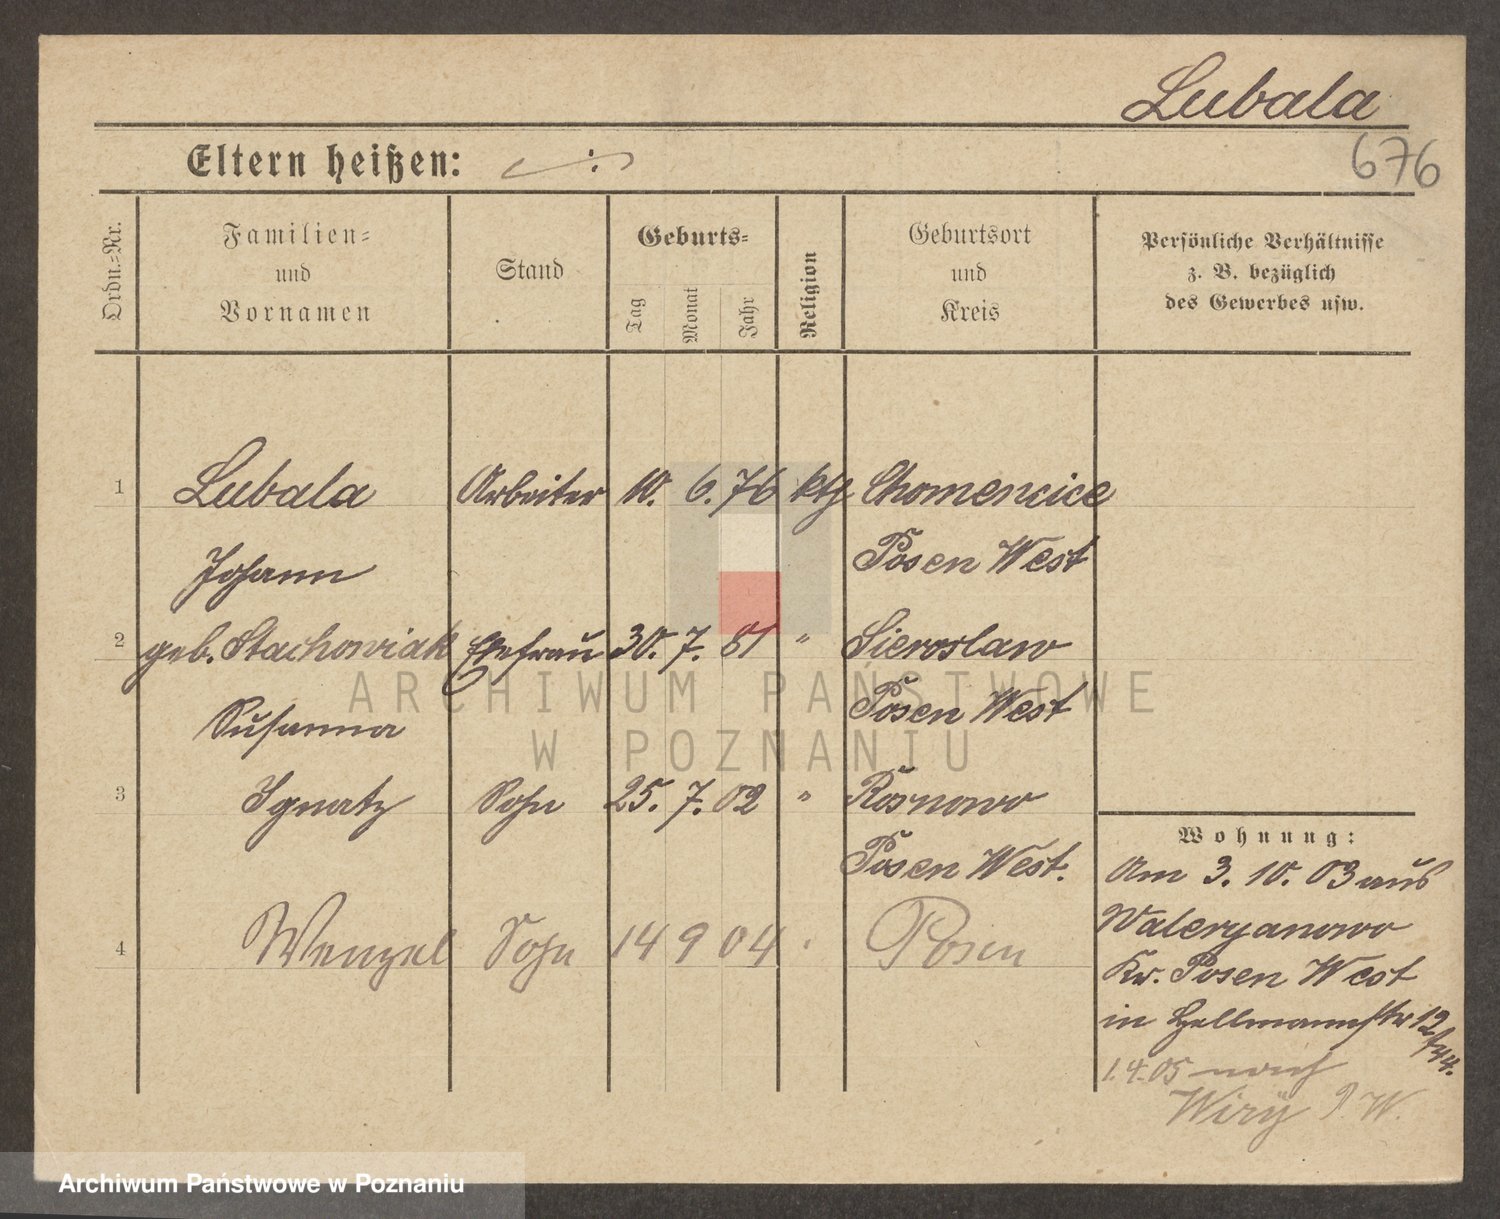 Lubala
676
Eltern heißen: ·/·
Ordn.-Nr. Familien- und Vornamen Stand Geburts- Tag Monat Jahr Religion Geburtsort und Kreis Persönliche Verhältnisse z. B. bezüglich des Gewerbes usw.
1 Lubala Arbeiter 10. 6. 76 kth Chomencice
Johann Posen West
2 geb. Stachowiak Ehefrau 30. 7. 81 " Sieroslaw
Susanna Posen West
3 Ignatz Sohn 25. 7. 02 " Rosnowo
Posen West.
4 Wenzel Sohn 14 9 04 Posen
Wohnung:
Am 3. 10. 03 aus
Waleryanowo
Kr. Posen West
in Hellmannstr 12
/44.
1.4.05 nach
Wiry P. W.
ARCHIWUM PAŃSTWOWE
W POZNANIU
Archiwum Państwowe w Poznaniu